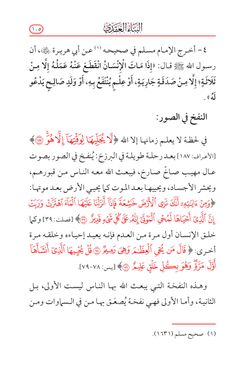 ١٠٥
البناء العقدي
٤- أخرج الإمام مسلم في صحيحه (١) عن أبي هريرة ﵁، أن
رسول الله ﷺ قال: «إِذَا مَاتَ الْإِنْسَانُ انْقَطَعَ عَنْهُ عَمَلُهُ إِلَّا مِنْ
ثَلَاثَةٍ؛ إِلَّا مِنْ صَدَقَةٍ جَارِيَةٍ، أَوْ عِلْمٍ يُنْتَفَعُ بِهِ، أَوْ وَلَدٍ صَالِحٍ يَدْعُو
لَهُ».
النفخ في الصور:
في لحظة لا يعلم زمانها إلا الله ﴿لَا يُجَلِّيهَا لِوَقْتِهَا إِلَّا هُوَ﴾
[الأعراف: ١٨٧] بعد رحلة طويلة في البرزخ؛ يُنفخ في الصور بصوت
عال مهيب صائح صارخ، فيبعث الله معه الناس من قبورهم،
ويحشر الأجساد، ويحييها بعد الموت كما يحيي الأرض بعد موتها:
﴿وَمِنْ آيَاتِهِ أَنَّكَ تَرَى الْأَرْضَ خَاشِعَةً فَإِذَا أَنْزَلْنَا عَلَيْهَا الْمَاءَ اهْتَزَّتْ وَرَبَتْ
إِنَّ الَّذِي أَحْيَاهَا لَمُحْيِ الْمَوْتَى إِنَّهُ عَلَى كُلِّ شَيْءٍ قَدِيرٌ﴾ [فصلت: ٣٩] وكما
خلق الإنسان أول مرة من العدم فإنه يعيد إحياءه وخلقه مرة
أخرى: ﴿قَالَ مَنْ يُحْيِ الْعِظَامَ وَهِيَ رَمِيمٌ ۝ قُلْ يُحْيِيهَا الَّذِي أَنْشَأَهَا
أَوَّلَ مَرَّةٍ وَهُوَ بِكُلِّ خَلْقٍ عَلِيمٌ﴾ [يس: ٧٨-٧٩].
وهذه النفخة التي يبعث الله بها الناس ليست الأولى، بل
الثانية، وأما الأولى فهي نفخة يُصعَق بها من في السماوات ومن
(١) صحيح مسلم (١٦٣١).